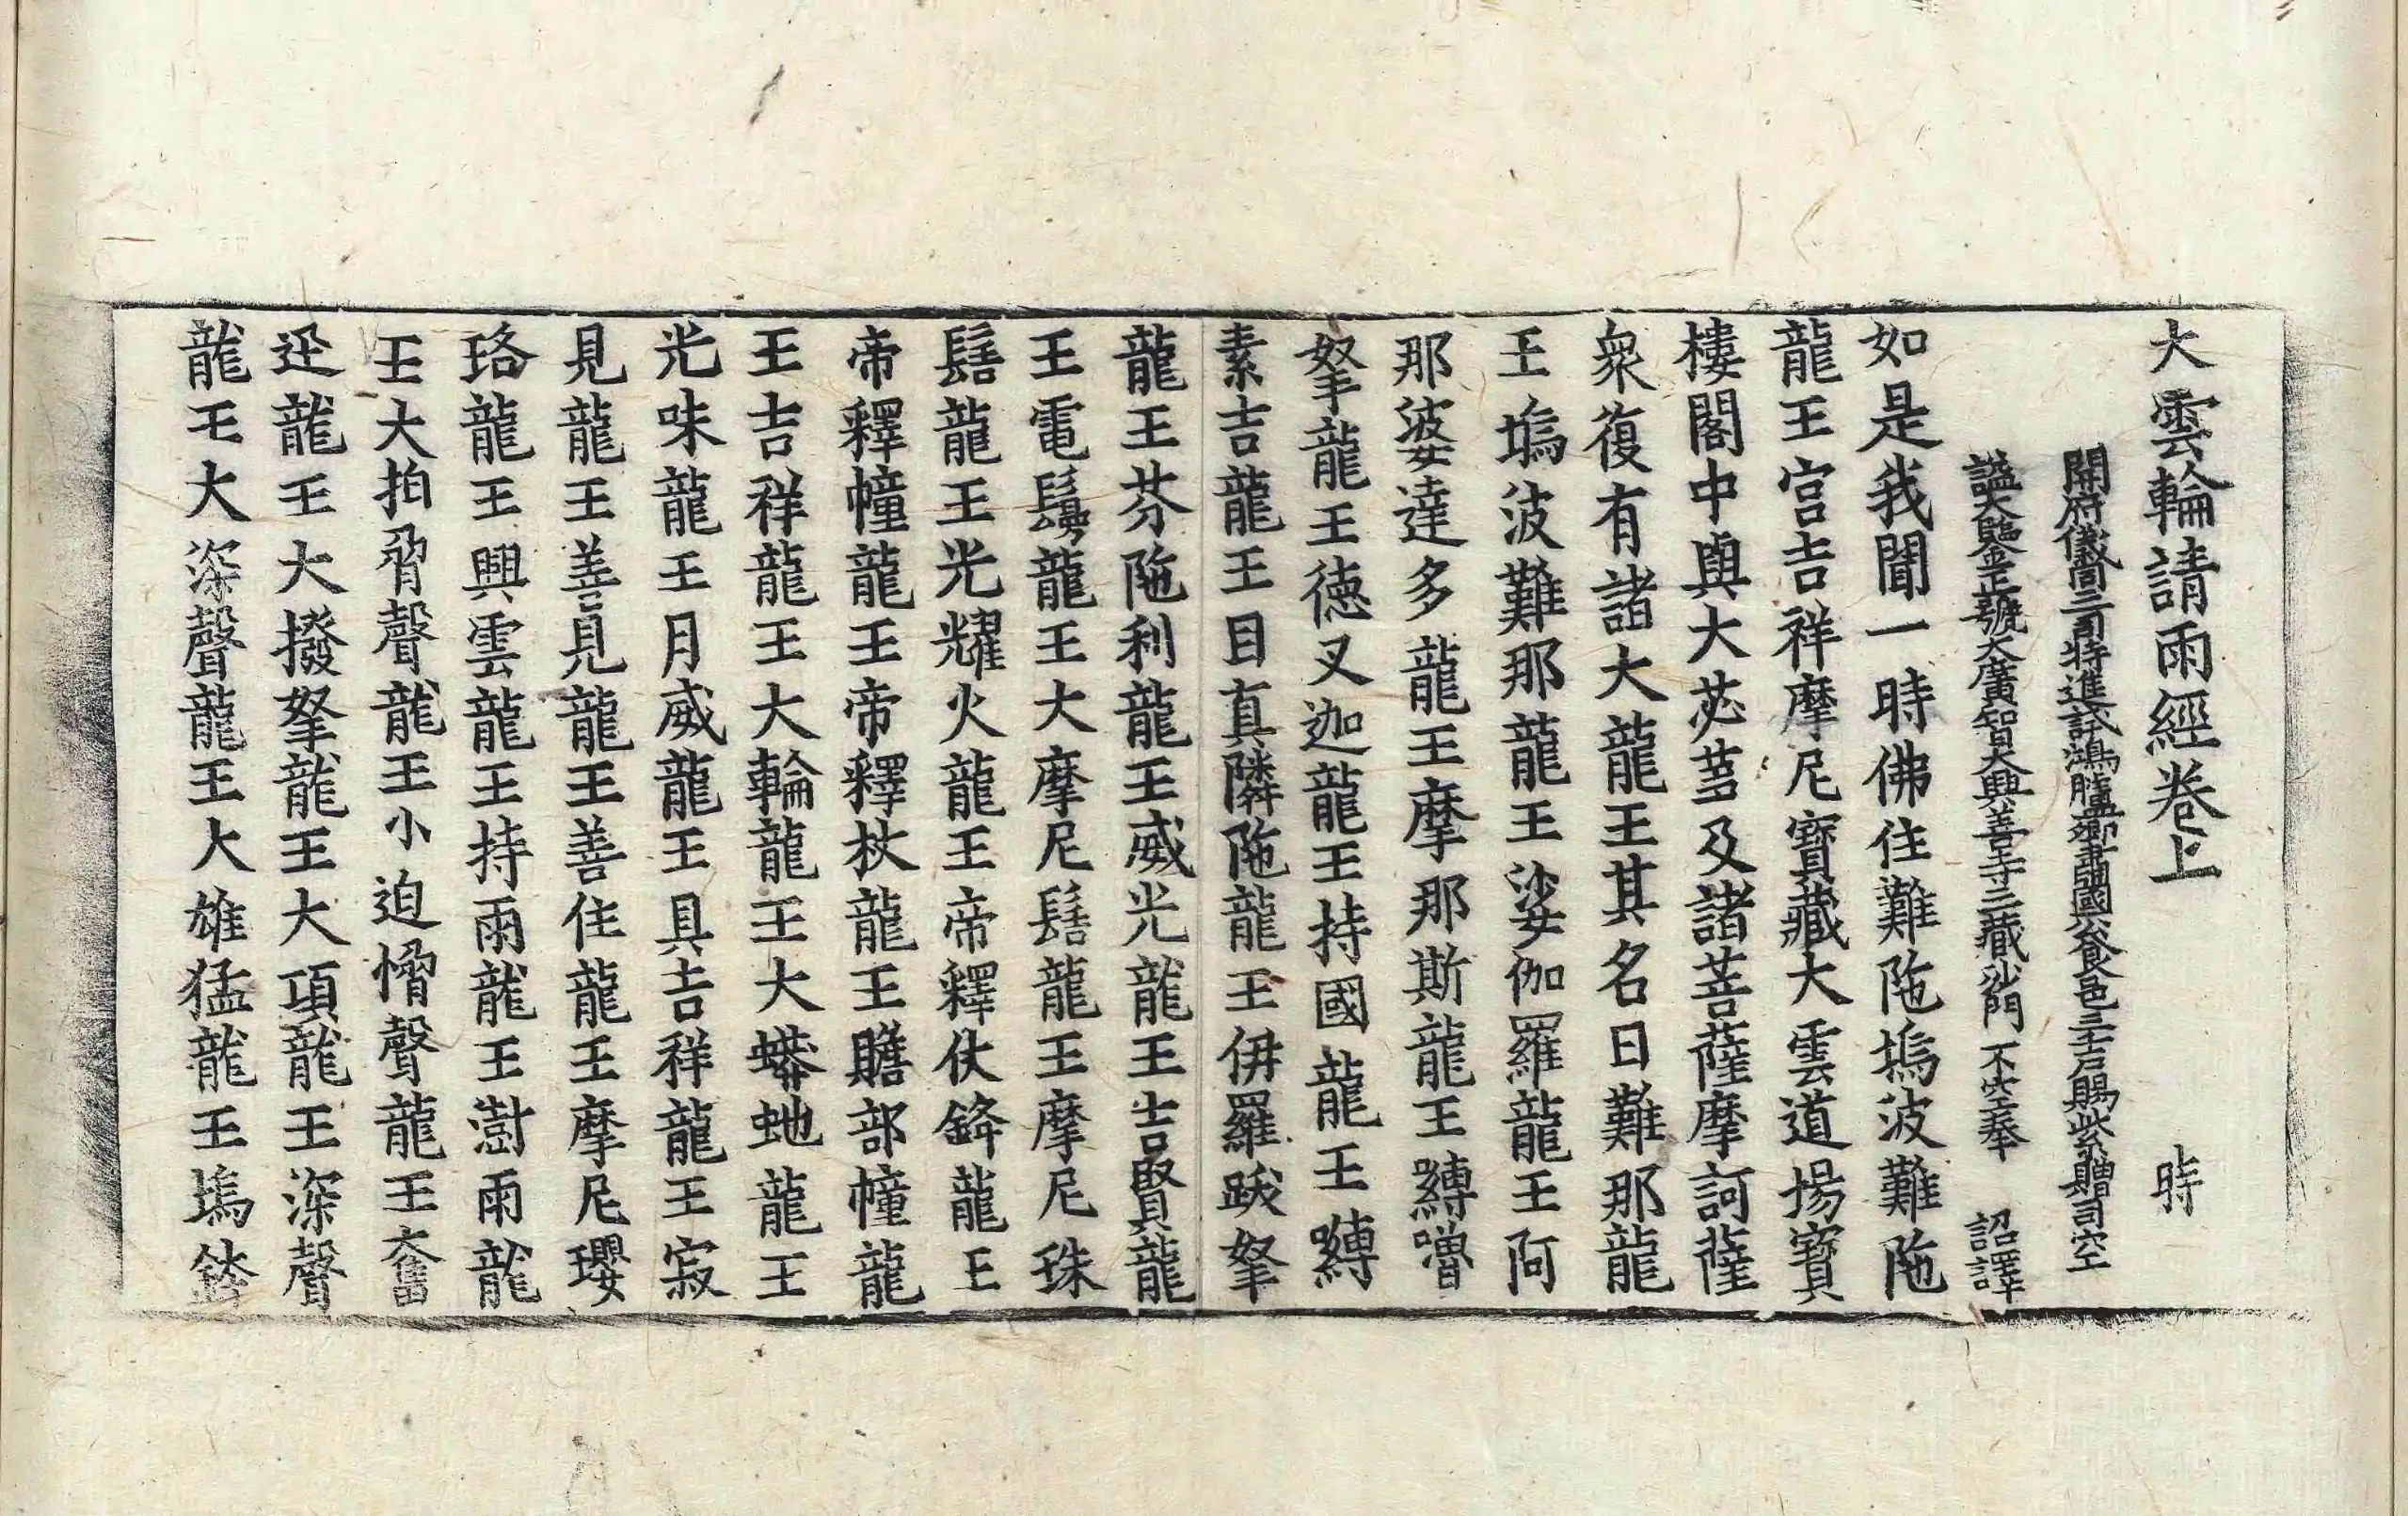 大雲輪請雨經卷上 時
開府儀同三司特進試鴻臚卿肅國公食邑三千戶賜紫贈司空
謚大鑒正號大廣智大興善寺三藏沙門 不空奉 詔譯
如是我聞一時佛住難陁塢波難陁
龍王宮吉祥摩尼寶藏大雲道場寶
樓閣中與大苾蒭及諸菩薩摩訶薩
衆復有諸大龍王其名曰難那龍
王塢波難那龍王娑伽羅龍王阿
那婆達多龍王摩那斯龍王嚩嚕
拏龍王德叉迦龍王持國龍王嚩
素吉龍王目真隣陁龍王伊羅跋拏
龍王芬陁利龍王威光龍王吉賢龍
王電鬘龍王大摩尼髻龍王摩尼珠
髻龍王光耀火龍王帝釋仗鋒龍王
帝釋幢龍王帝釋杖龍王贍部幢龍
王吉祥龍王大輪龍王大蟒虵龍王
光味龍王月威龍王具吉祥龍王寂
見龍王善見龍王善住龍王摩尼瓔
珞龍王興雲龍王持雨龍王澍雨龍
王大拍脅聲龍王小迫愶聲龍王奮
迅龍王大撥拏龍王大項龍王深聲
龍王大深聲龍王大雄猛龍王塢鉢